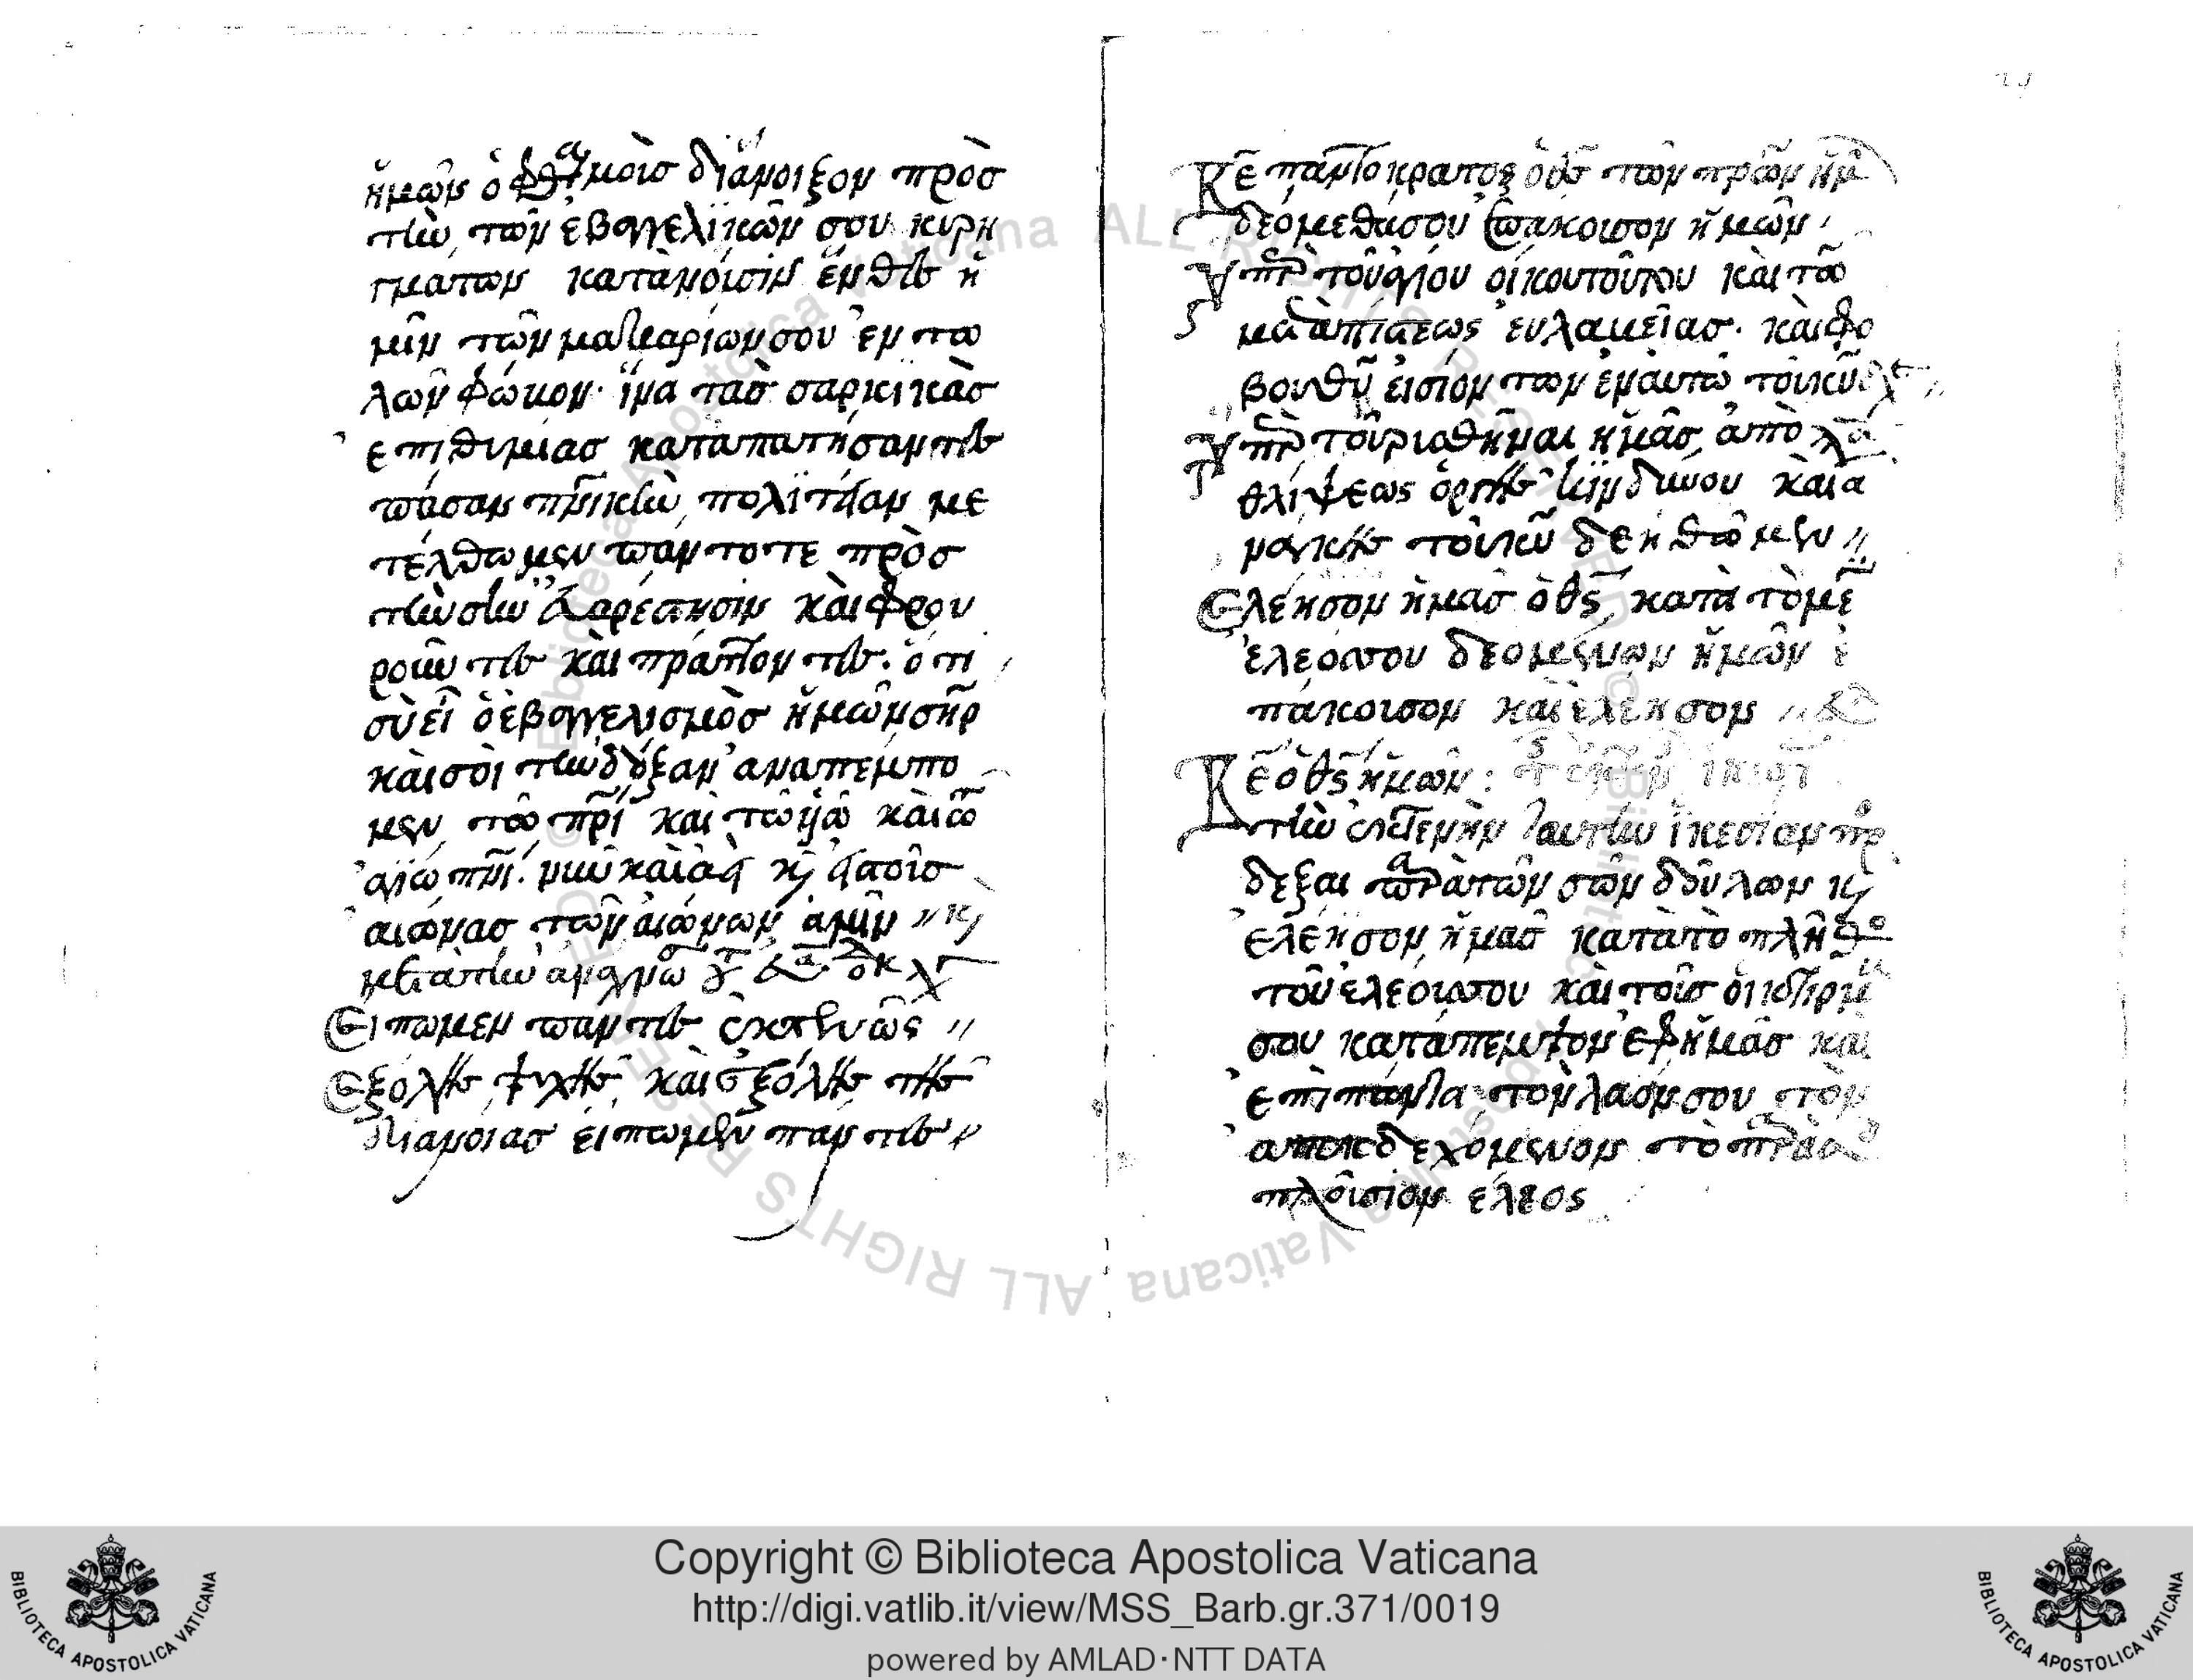 ἡμῶν ὀφθαλμοὺσ διάνοιξον πρὸσ
τὴν τῶν εβαγγελϊκῶν σου κυρη
γματων κατανόισὶν ἔνθες ἡ
μῖν τῶν μακαρίων σου ἐντω
λῶν φώκον· ἵνα τὰσ σαρκϊκὰσ
επιθυμίασ καταπατήσαντες
πᾶσαν πν̅ικὴν πολϊτείαν με
τέλθωμεν παντοτε πρὸσ
τὴν σὴν ἐυαρέστησιν καὶ φρου
ροῦντες καὶ πράττοντες· ὅτι
σὺ εῖ ὁ εβαγγελισμὸσ ἡμῶν σηρ
καὶ σοὶ τὴν δόξαν ἀναπέμπο
μεν τῶ πρ̅ι καὶ τῶ υἱῶ καὶ τῶ
ἁγίω πν̅ι. νῦν καὶ ἀεὶ κ, εἰς τοὺσ
αιῶνασ τῶν αιώνων ἀμήν // κ,
μετὰ τὴν
Ειπωμεν παντες εκτενῶς //
Εξ όλης ψυχῆς καὶ εξ όλης τῆς
διανοιασ είπωμεν παντες //
Κε̅ παντοκρατορ ὁ θσ̅ τῶν πρω̅ν ἡμῶ
δεόμεθά σου ἐπάκουσον ἡμῶν
Υπὲρ τοῦ ἁγίου οίκου τοῦτου καὶ τῶ
μετὰ πίστεως ευλαμείασ· καὶ φο
βου θῦ εισίον των ἐν αυτῶ τοῦ κῦ
Υπὲρ τοῦ ρισθῆναι ἡμᾶσ ἀπὸ
θλίψεως ὀργῆς κϊνδύνου καὶ α
ναγκης τοῦ κῦ δεηθῶμεν //
Ελέησον ἡμᾶσ ὁ θς̅ κατὰ τὸ με
ἔλεοσ σου δεομένων ἡμῶν ἐ
πάκουσον καὶ ἐλέησον //
Κε̅ ὁ θς̅ ἡμῶν :
τὴν εκτενὴν ταυτην ἱκεσίαν πρ
δεξαι παρὰ τῶν σῶν δούλων κ,
ἐλέησον ἡμᾶσ κατὰ το πλῆθο
τοῦ ελέουσ σου καὶ τοὺσ οικτιρμ
σου κατάπεμψον ἐφ ἡμᾶσ καὶ
ἐπὶ πάντα τὸν λαόν σου τὸν
απεκδεχόμενον τὸ παρὰ σ
πλοῦσιον ελεος
Copyright © Biblioteca Apostolica Vaticana
http://digi.vatlib.it/view/MSS_Barb.gr.371/0019
powered by AMLAD·NTT DATA
BIBLIOTECA APOSTOLICA VATICANA
BIBLIOTECA APOSTOLICA VATICANA